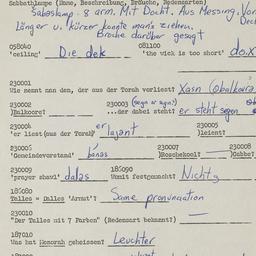 Sabbathlampe (Name, Beschreibung, Bräuche, Redensarten)
Sabaslamp. 8 arm. Mit Docht. Aus Messing. Von
Länger u. kürzer konnte man's ziehen. Dec
Brache darüber gesagt
058040 081100
'ceiling' Die dek 'the wick is too short' do.x
230001
Wie nennt man den, der aus der Torah vorliest? Xasn
230002 230003
)Balkoore( ...der dabei steht: er steht segen
230004 230005
'er liest (aus der Torah)' er lajant )leient(
230006 230007 230008
'Gemeindevorstand' )Boschekool( )Gabbe(
230009 185090
'prayer shawl' dalas Womit festgemacht? Nichts
185080
Talles = Dalles 'Armut'? Same pronunciation
230010
"Der Talles mit 7 Farben" (Redensart bekannt?) —
187010
Was hat Menorah geheissen? Leuchter